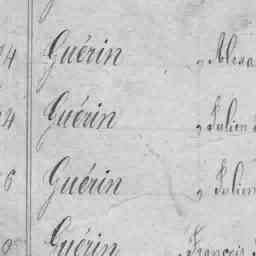 4 Guérin , Alexa
4 Guérin , Julien
6 Guérin , Julien
0 Guérin , François